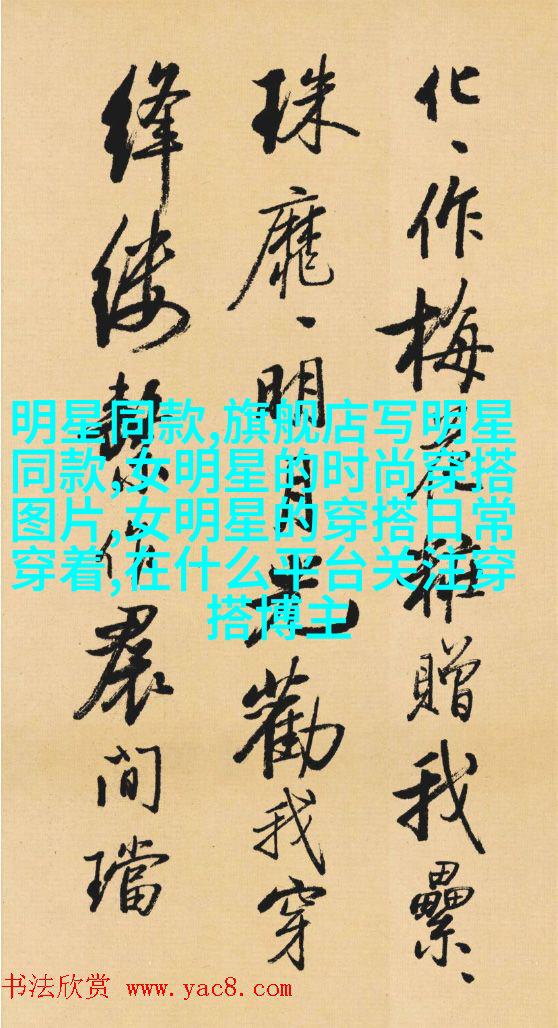 化、作梅花雜贈我纍、
珠靡、明月光勸我穿
絳縷繫作裠間璫
明星同款,旗舰店写明星
同款,女明星的时尚穿搭
图片,女明星的穿搭日常
穿着,在什么平台关注穿
搭博主
书法欣赏 www.yac8.com